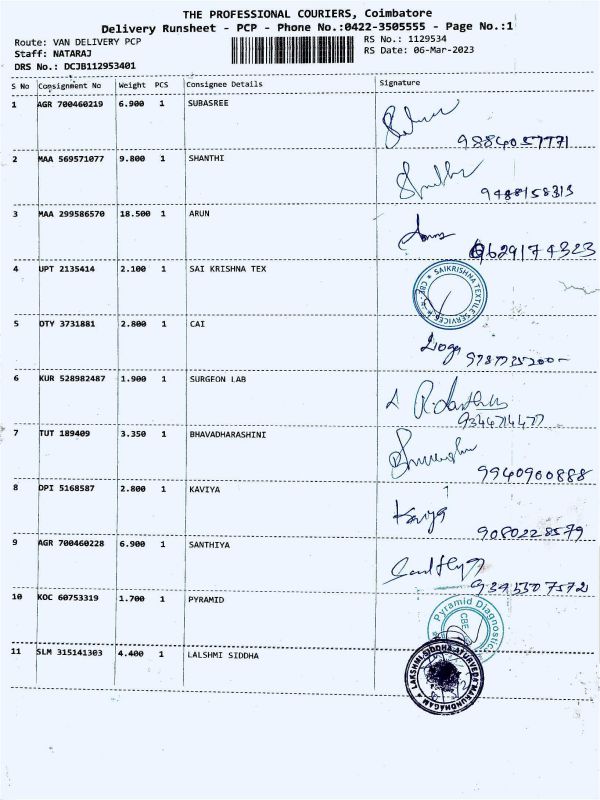 THE PROFESSIONAL COURIERS, Coimbatore
Delivery Runsheet - PCP - Phone No.:0422-3505555 - Page No.:1
Route: VAN DELIVERY PCP
RS No.: 1129534
Staff: NATARAJ
RS Date: 06-Mar-2023
DRS No.: DCJB112953401
S No Consignment No Weight PCS Consignee Details Signature
1 AGR 700460219 6.900 1 SUBASREE
9884057771
2 MAA 569571077 9.800 1 SHANTHI
9488158313
3 MAA 299586570 18.500 1 ARUN
9629174323
4 UPT 2135414 2.100 1 SAI KRISHNA TEX
SAIKRISHNA TEXTILE SERVICES
5 DTY 3731881 2.800 1 CAI
6 KUR 528982487 1.900 1 SURGEON LAB
9344714477
7 TUT 189409 3.350 1 BHAVADHARASHINI
9940900888
8 DPI 5168587 2.800 1 KAVIYA
Kaviya
9080228579
9 AGR 700460228 6.900 1 SANTHIYA
9395507572
10 KOC 60753319 1.700 1 PYRAMID
Pyramid Diagnostic
CBE
11 SLM 315141303 4.400 1 LALSHMI SIDDHA
LAKSHMI SIDDHA AYURVEDA MARUNDHAGAM